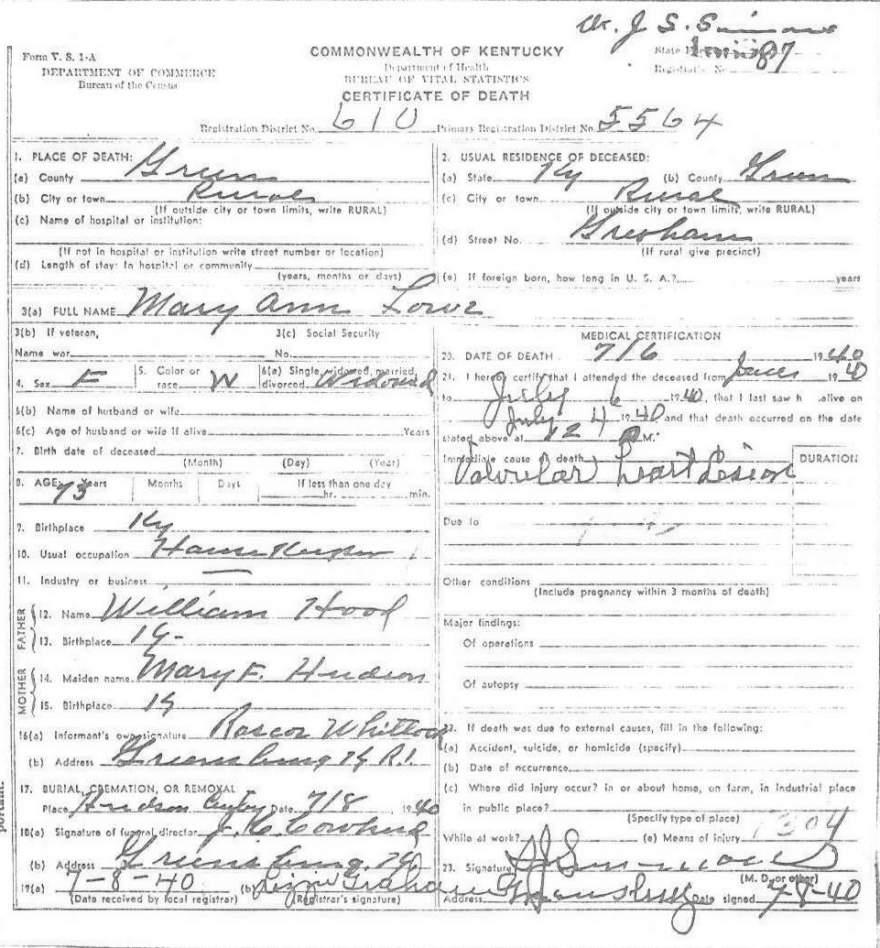 Dr. J. S. Simmons
Form V. S. 1-A
DEPARTMENT OF COMMERCE
Bureau of the Census
COMMONWEALTH OF KENTUCKY
Department of Health
BUREAU OF VITAL STATISTICS
CERTIFICATE OF DEATH
State File
Registrar's No. 87
Registration District No. 610 Primary Registration District No. 5564
1. PLACE OF DEATH:
(a) County Green
(b) City or town Rural
(If outside city or town limits, write RURAL)
(c) Name of hospital or institution:
(If not in hospital or institution write street number or location)
(d) Length of stay: In hospital or community
(years, months or days)
2. USUAL RESIDENCE OF DECEASED:
(a) State Ky (b) County Green
(c) City or town Rural
(If outside city or town limits, write RURAL)
(d) Street No. Gresham
(If rural give precinct)
(e) If foreign born, how long in U. S. A.? years
3(a) FULL NAME Mary Ann Lowe
3(b) If veteran, 3(c) Social Security
Name war No.
4. Sex F 5. Color or race W 6(a) Single, widowed, married, divorced Widowed
6(b) Name of husband or wife
6(c) Age of husband or wife if alive Years
7. Birth date of deceased
(Month) (Day) (Year)
8. AGE 73 Years Months Days If less than one day
hr. min.
9. Birthplace Ky
10. Usual occupation House Keeper
11. Industry or business
FATHER
12. Name William Hood
13. Birthplace Ky
MOTHER
14. Maiden name Mary F. Hudson
15. Birthplace Ky
16(a) Informant's own signature Roscoe Whitlock
(b) Address Greensburg Ky R.1.
17. BURIAL, CREMATION, OR REMOVAL
Place Hudson Date 7/8, 1940
18(a) Signature of funeral director J. C. Cowherd
(b) Address Greensburg, Ky
19(a) 7-8-40 (b) Lizzie Graham
(Date received by local registrar) (Registrar's signature)
MEDICAL CERTIFICATION
20. DATE OF DEATH 7/6 1940
21. I hereby certify that I attended the deceased from 1940
to July 6 1940, that I last saw h alive on
July 4 1940 and that death occurred on the date
stated above at 12 M.
Immediate cause of death DURATION
Valvular heart Lesion
Due to
Other conditions
(Include pregnancy within 3 months of death)
Major findings:
Of operations
Of autopsy
22. If death was due to external causes, fill in the following:
(a) Accident, suicide, or homicide (specify)
(b) Date of occurrence
(c) Where did injury occur? in or about home, on farm, in industrial place
in public place?
(Specify type of place)
While at work? (e) Means of injury
23. Signature S J Simmons
(M. D. or other)
Address Greensburg Date signed 7-8-40
portant.